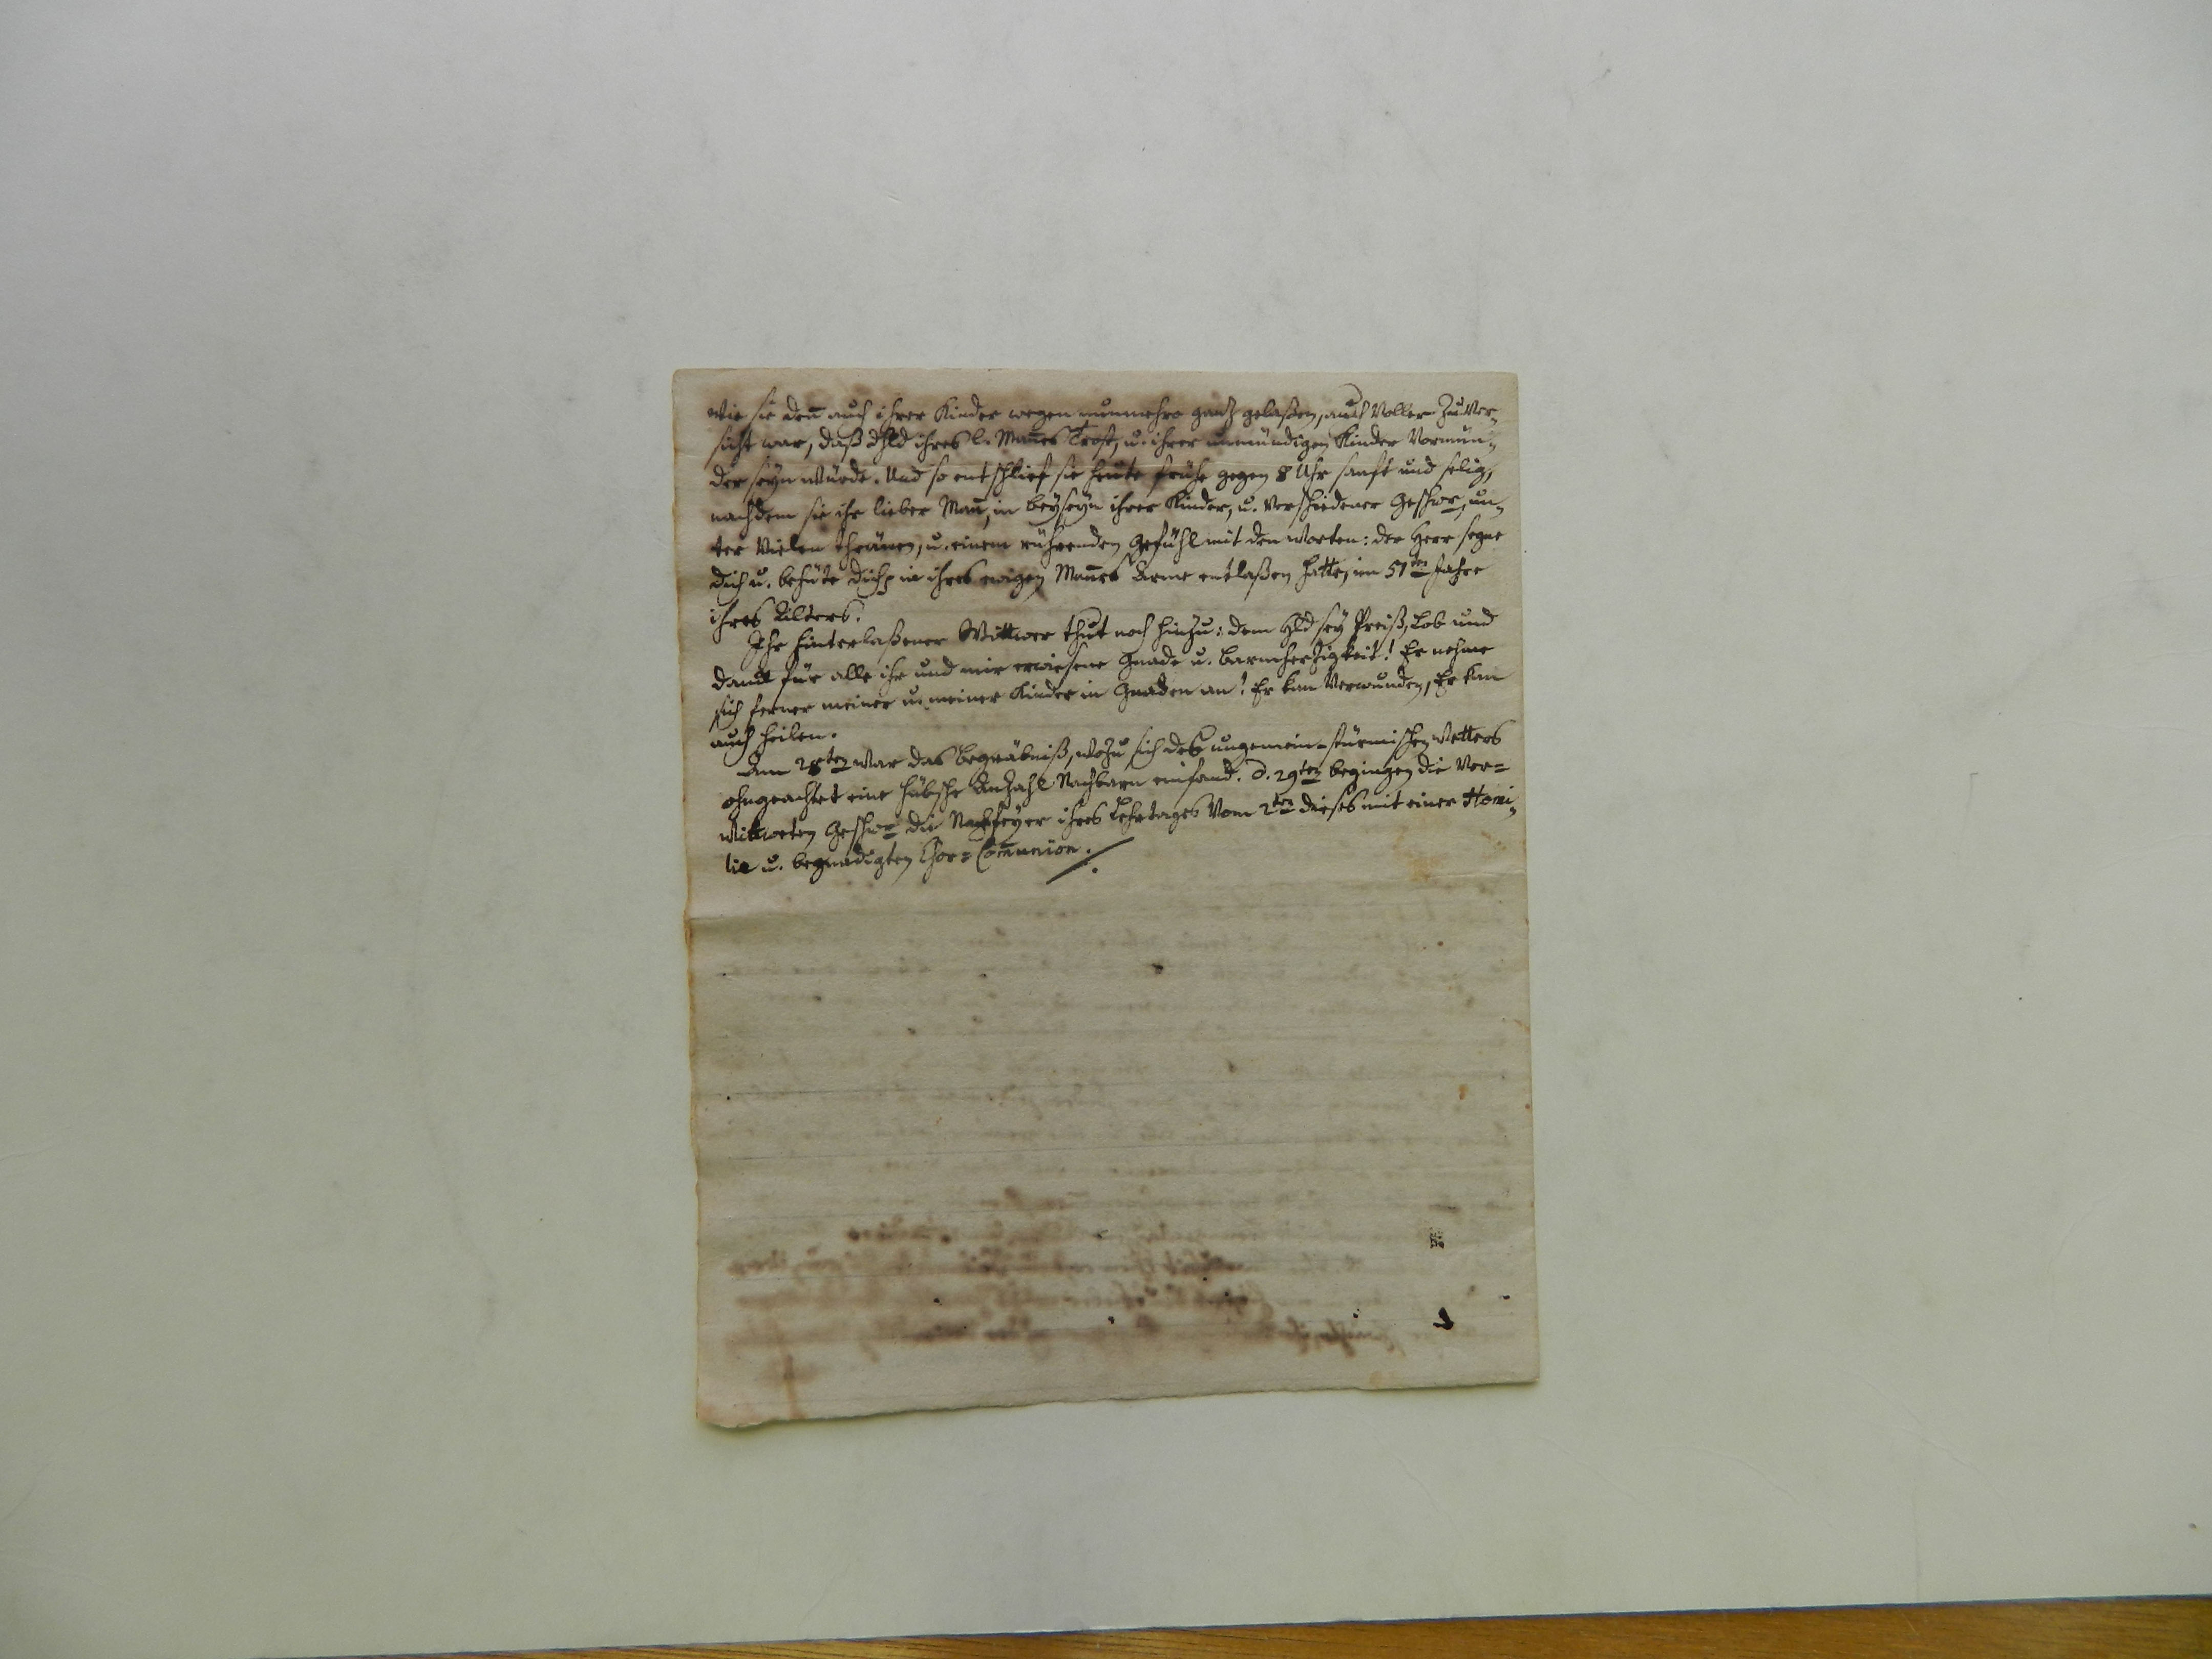 wie sie deñ auch ihrer Kinder wegen nunmehro ganz gelaßen, auch voller Zuver-
sicht war, daß d. Hld ihres l. Mañes Trost, u. ihrer unmündigen Kinder Vormün-
der seyn würde. Und so entschlief sie heute frühe gegen 8 Uhr sanft und selig,
nachdem sie ihr lieber Mañ, in beyseyn ihrer Kinder, u. verschiedener Geschwr, un-
ter vielen thränen, u. einem rührenden Gefühl mit den Worten: der Herr segne
dich u. behüte dich, in ihres ewigen Mañes Arme entlaßen hatte, im 51ten Jahre
ihres Alters.
Ihr hinterlaßener Wittwer thut noch hinzu: dem Hld sey Preiß, Lob und
Danck für alle ihr und mir erwiesene Gnade u. Barmherzigkeit! Er nehme
sich ferner meiner u. meiner Kinder in Gnaden an! Er kan verwunden, Er kan
auch heilen.
Am 28ten war das Begräbniß, wozu sich des ungemein-stürmischen Wetters
ohngeachtet eine hübsche Anzahl Nachbarn einfand. d. 29ten begingen die Ver=
wittweten Geschwr die Nachfeyer ihres Festtages vom 2ten dieses mit einer Homi-
lie u. begnadigten Chor=Com̃union.